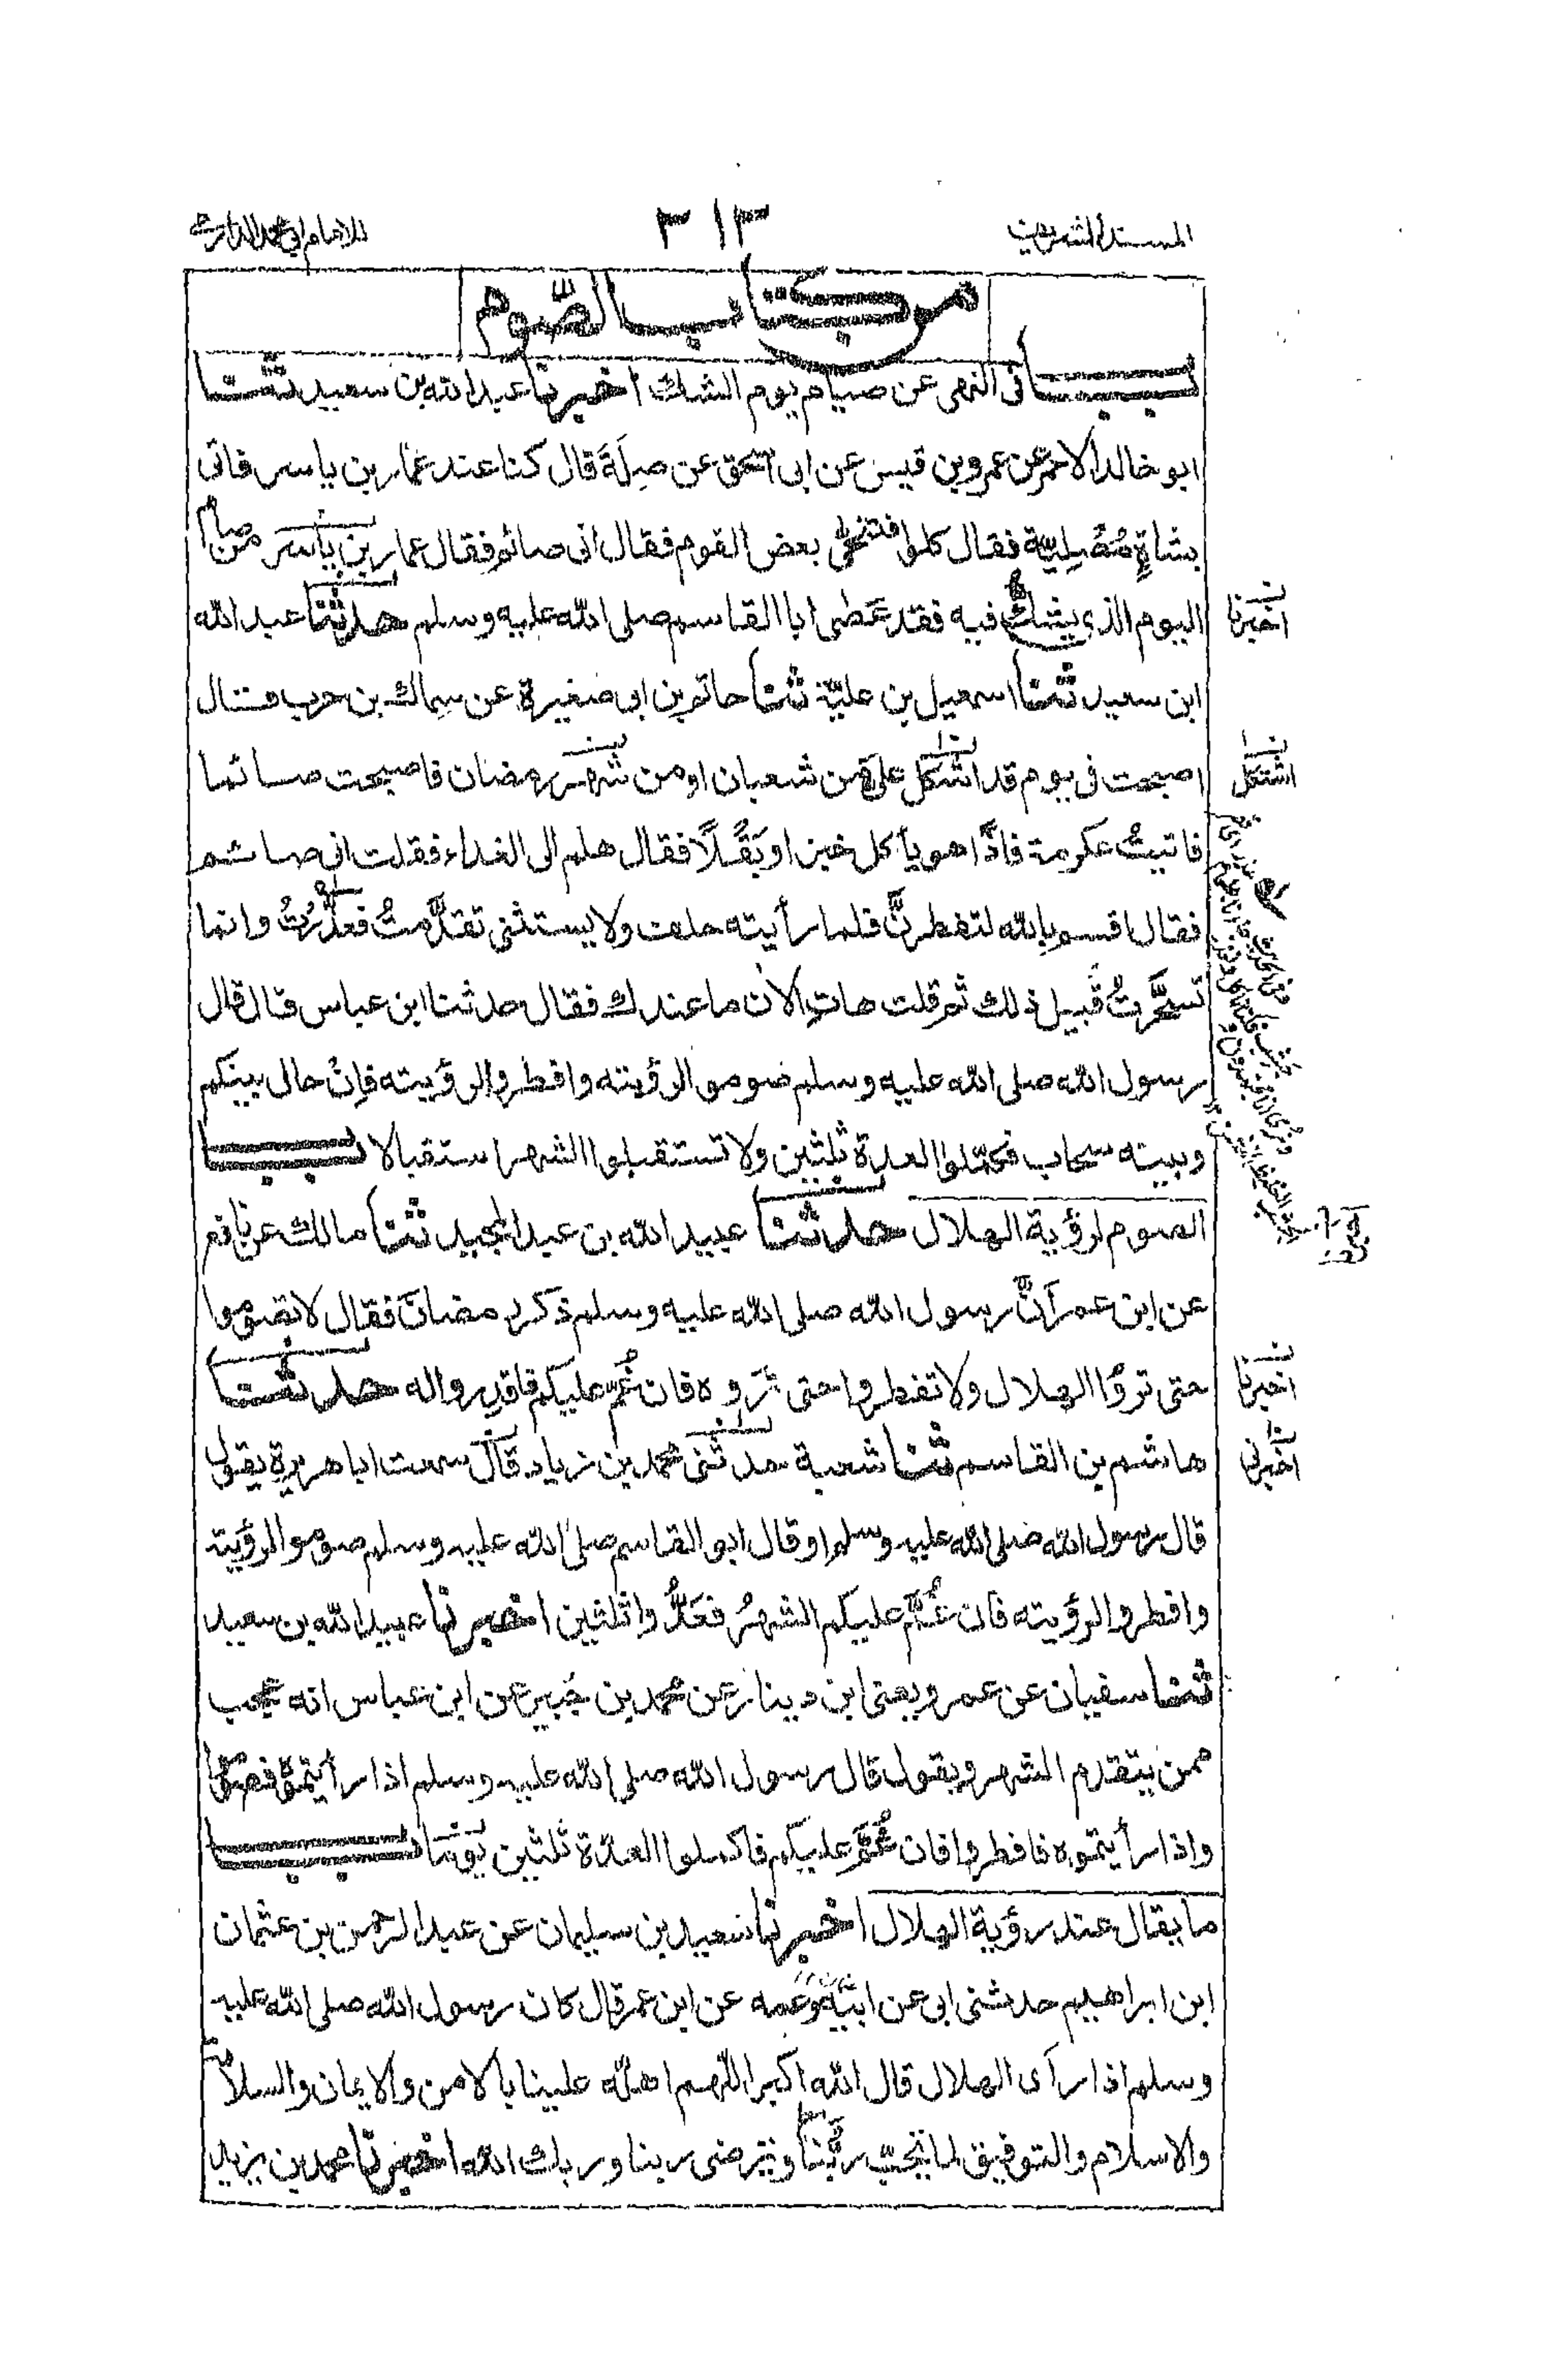 المسند الشريف
٢١٣
للامام ابي محمد الدارمي
من كتاب الصّوم
باب في النهى عن صيام يوم الشك اخبرنا عبد الله بن سعيد ثنا
ابو خالد الاحمر عن عمرو بن قيس عن ابى اسحٰق عن صِلَةَ قال كنا عند عمّار بن ياسر فاتى
بشاةٍ مُصْلِيّة فقال كلوا فتنحّى بعض القوم فقال انى صائم فقال عمار بن ياسر من صام
اليوم الذى يشكُّ فيه فقد عَصٰى ابا القاسم صلى الله عليه وسلم حدثنا عبد الله
ابن سعيد ثنا اسمعيل بن عليّة ثنا حاتم بن ابى صغيرة عن سِماك بن حرب قال
اصبحت فى يوم قد اشكل علىّ من شعبان او من شهر رمضان فاصبحت صائما
فاتيتُ عكرمة فاذا هو ياكل خبزا وبَقْلًا فقال هلم الى الغداء فقلت انى صائم
فقال اقسم بالله لتفطرنَّ فلما رأيته حلف ولا يستثنى تقدَّمتُ فعذّرتُ وانما
تسحَّرتُ قُبيل ذلك ثم قلت هاتِ الآن ما عندك فقال حدثنا ابن عباس قال قال
رسول الله صلى الله عليه وسلم صوموا لرؤيته وافطروا لرؤيته فاِنْ حال بينكم
وبينه سحاب فكمّلوا العدة ثلثين ولا تستقبلوا الشهر استقبالا باب
الصوم لرؤية الهلال حدثنا عبيد الله بن عبد المجيد ثنا مالك عن نافع
عن ابن عمر اَنَّ رسول الله صلى الله عليه وسلم ذكر رمضانَ فقال لا تصوموا
حتى تروُا الهلال ولا تفطروا حتى تَرَوه فان غُمّ عليكم فاقدِروا له حدثنا
هاشم بن القاسم ثنا شعبة حدثنى محمد بن زياد قال سمعت ابا هريرة يقول
قال رسول الله صلى الله عليه وسلم او قال ابو القاسم صلى الله عليه وسلم صوموا لرؤيته
وافطروا لرؤيته فان غُمّ عليكم الشهرُ فعَدُّوا ثلثين اخبرنا عبيد الله بن سعيد
ثنا سفيان عن عمرو يعنى ابن دينار عن محمد بن جُبير عن ابن عباس انه عجب
ممن يتقدم الشهر ويقول قال رسول الله صلى الله عليه وسلم اذا رأيتموه فصوموا
واذا رأيتموه فافطروا فان غُمَّ عليكم فاكملوا العدّة ثلثين يوما باب
ما يقال عند رؤية الهلال اخبرنا سعيد بن سليمان عن عبد الرحمن بن عثمان
ابن ابراهيم حدثنى ابى عن ابيه وعمه عن ابن عمر قال كان رسول الله صلى الله عليه
وسلم اذا رآى الهلال قال الله اكبر اللّهم اهلّه علينا بالامن والايمان والسلامة
والاسلام والتوفيق لما تحبّ ربّنا وترضى ربنا وربك الله اخبرنا محمد بن يزيد
اخبرنا
اشتكل
اخبرنا
اخبرنى